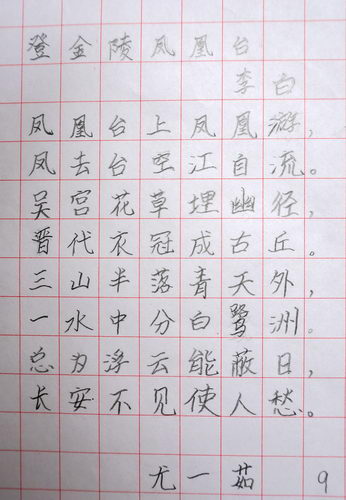 登金陵凤凰台
李白
凤凰台上凤凰游,
凤去台空江自流。
吴宫花草埋幽径,
晋代衣冠成古丘。
三山半落青天外,
一水中分白鹭洲。
总为浮云能蔽日,
长安不见使人愁。
尤一茹 9